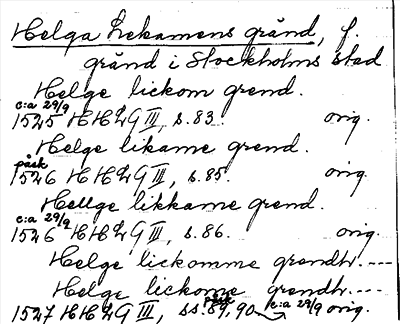 Helga Lekamens gränd, f.
gränd i Stockholms stad
Helge lickom grend.
c:a 29/9
1525 HHLG III, s. 83. orig.
Helge likame grend.
påsk
1526 HHLG III, s. 85. orig.
Hellge likkame grend.
c:a 29/9
1526 HHLG III, s. 86. orig.
Helge lickomme grendh. ---
Helge lickome grendh. ---
påsk c:a 29/9
1527 HHLG III, ss. 89, 90 orig.